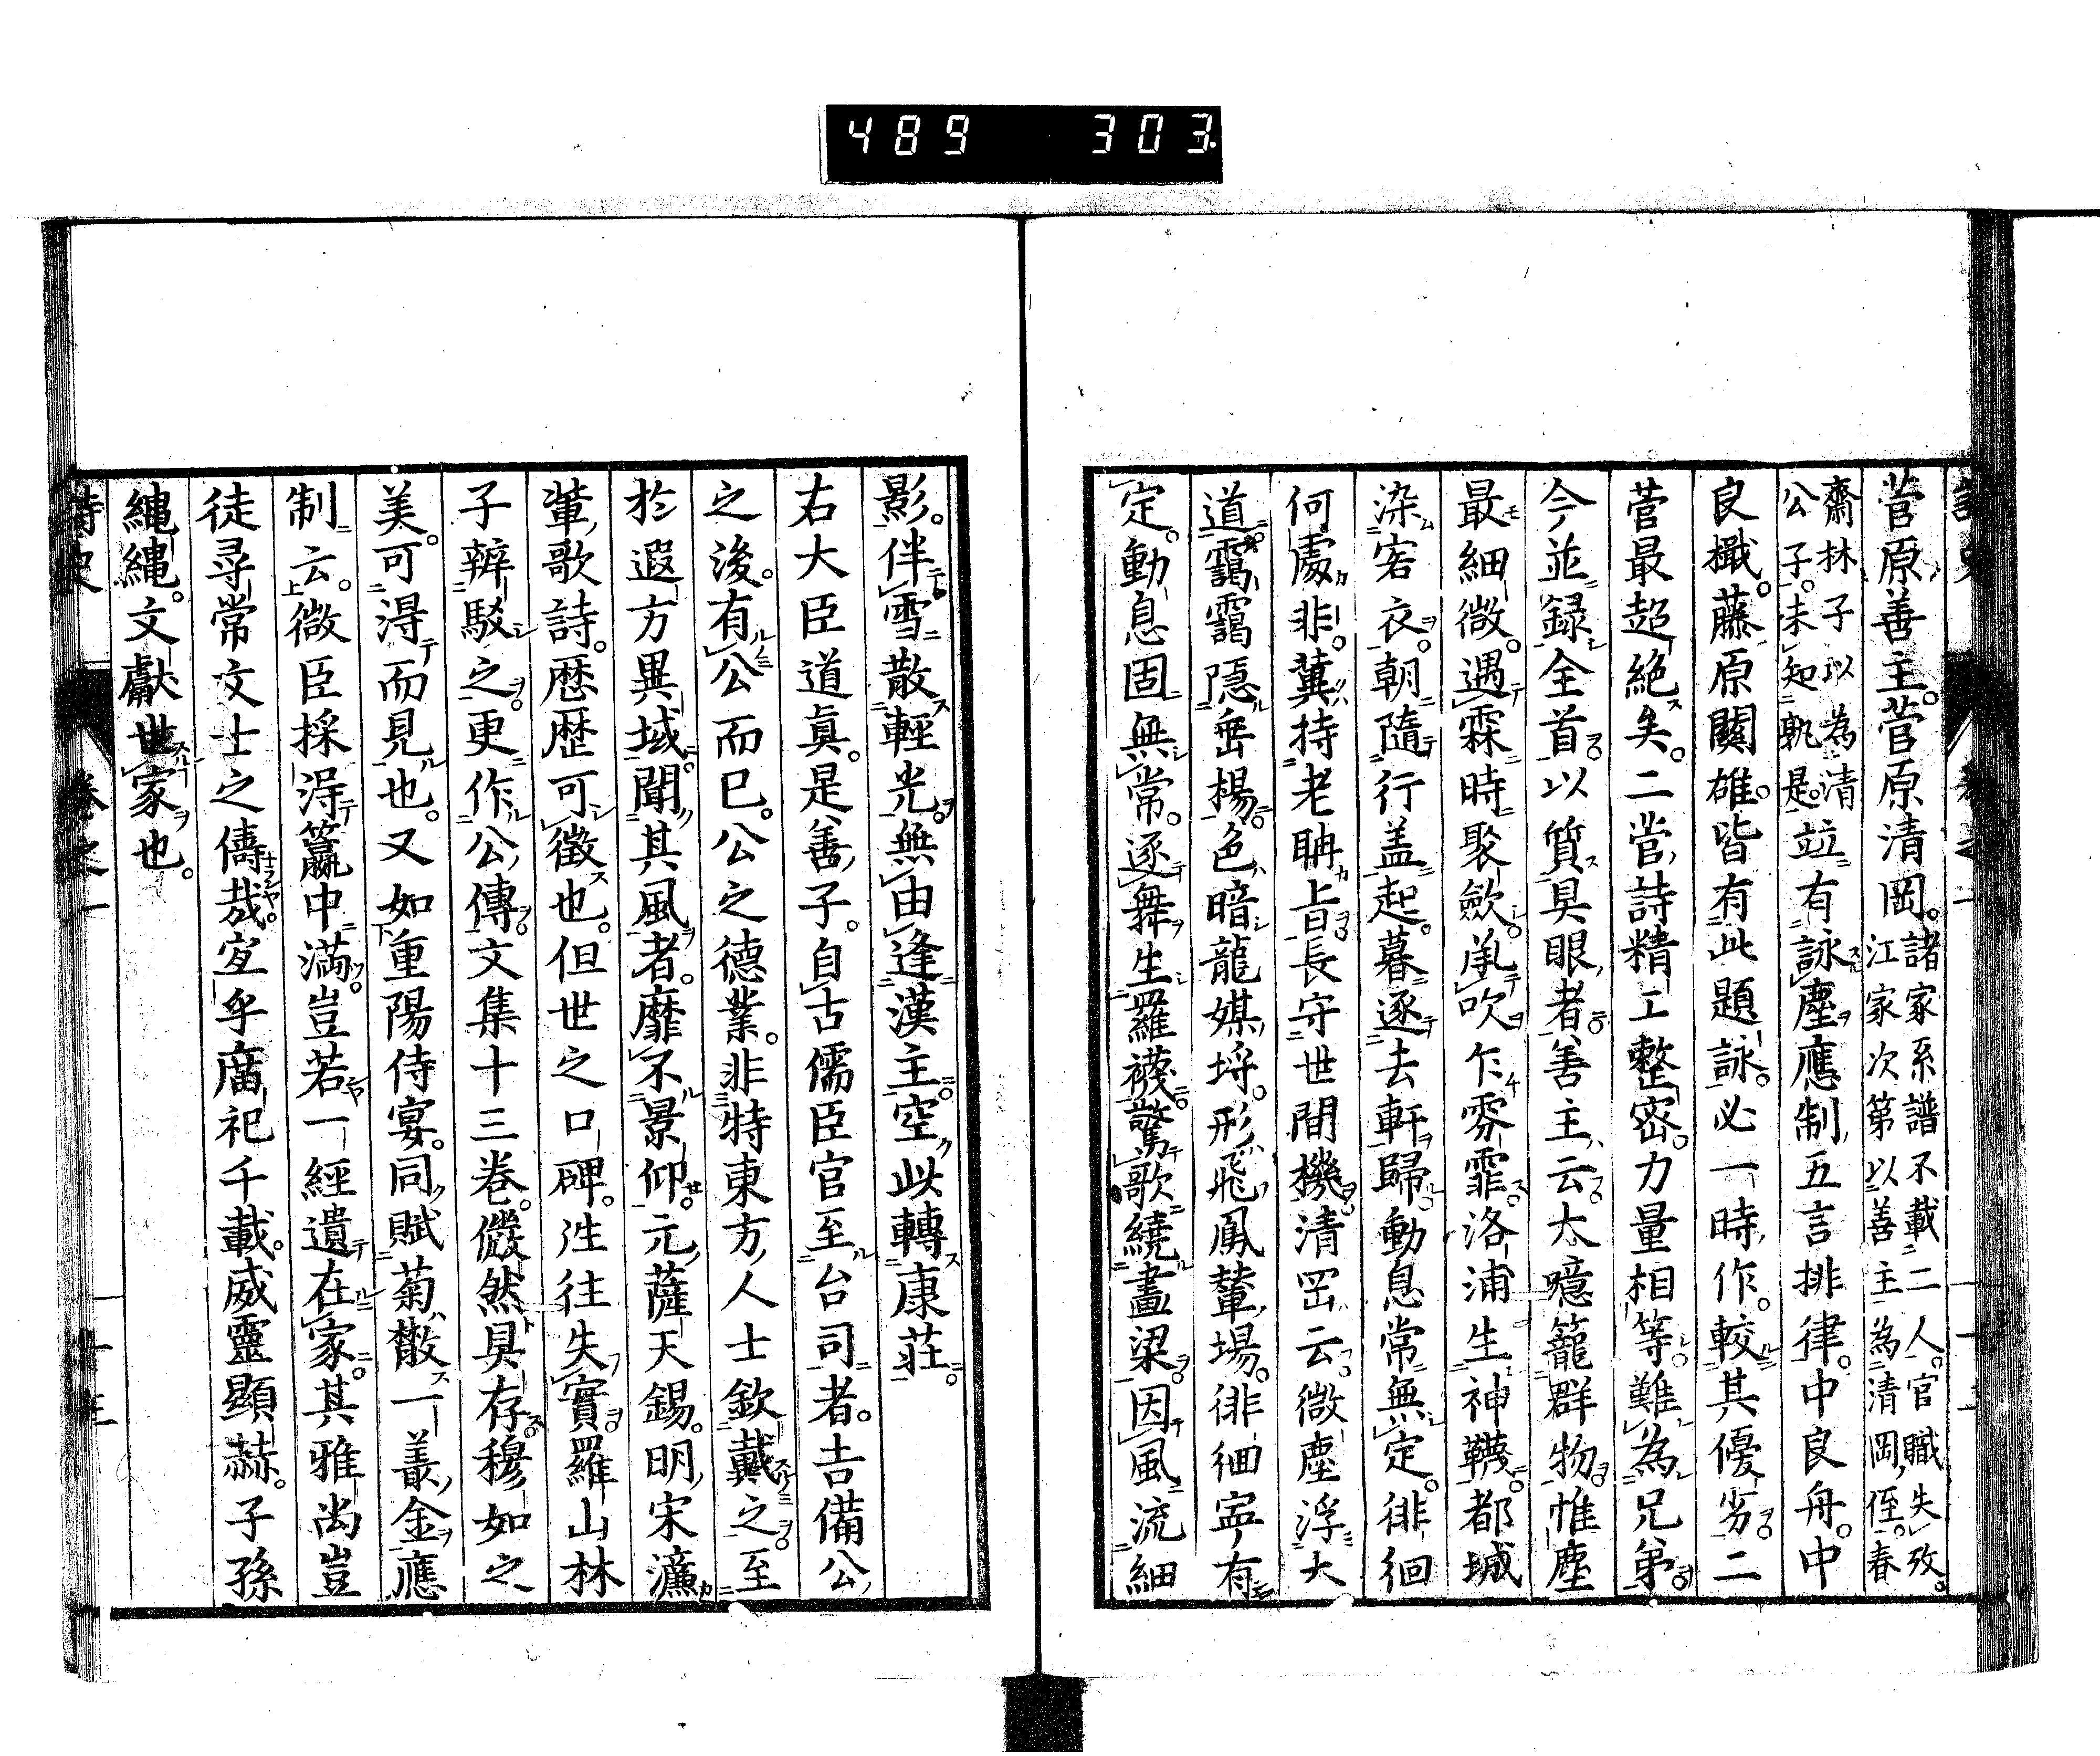 489 303
菅原善主。菅原清岡。諸家系譜不載二人。官職失攷。
江家次第以善主為清岡姪。春
齋林子以為清
公子。未知孰是。竝有詠塵應制五言排律。中良舟。中
良檝。藤原關雄。皆有此題詠。必一時作。較其優劣。二
菅最超絶矣。二菅詩精工整密。力量相等難為兄弟。
今並録全首以質具眼者。善主云。大噫籠群物。惟塵
最細微。遇霖時聚歛。承吹乍雰霏。洛浦生神韈。都城
染客衣。朝隨行盖起。暮逐去軒歸。動息常無定。徘徊
何處非。冀持老聃旨。長守世間機。清岡云。微塵浮大
道。靄靄隱垂楊。色暗龍媒埒。形飛鳳輦場。徘徊寧有
定。動息固無常。逐舞生羅襪。驚歌繞畫梁。因風流細
影。伴雪散輕光。無由逢漢主。空此轉康莊。
右大臣道真。是善子。自古儒臣官至台司者。吉備公
之後。有公而已。公之德業。非特東方人士欽戴之。至
於遐方異域聞其風者。靡不景仰。元薩天錫。明宋濂
輩。歌詩。歷歷可徵也。但世之口碑。往往失實。羅山林
子辨駁之。更作公傳。文集十三卷。儼然具存。穆如之
美。可淂而見也。又如重陽侍宴。同賦菊散一叢金應
制云。微臣採淂籯中滿。豈若一經遺在家。其雅尚豈
徒尋常文士之儔哉。宜乎廟祀千載。威靈顯赫。子孫
繩繩。文獻世家也。
詩史 卷之一